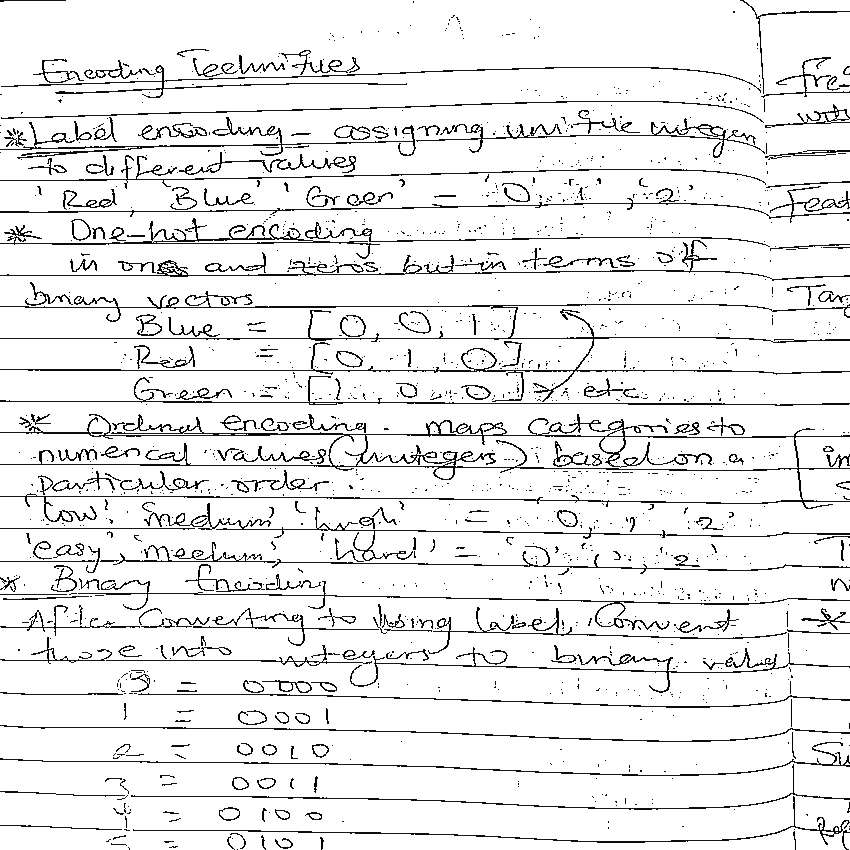 Encoding Techniques
* Label encoding - assigning unique integer
to different values
'Red', 'Blue' 'Green' = '0', '1', '2'
* One-hot encoding
in ones and zeros but in terms of
binary vectors
Blue = [0, 0, 1]
Red = [0, 1, 0]
Green = [1, 0, 0] etc
* Ordinal encoding - maps categories to
numerical values (integers) based on a
particular order.
'low', 'medium', 'high' = '0, '1', '2'
'easy', 'medium', 'hard' = '0', '1', '2'
* Binary Encoding
After converting to using label, Convert
those into integers to binary value
0 = 0000
1 = 0001
2 = 0010
3 = 0011
4 = 0100
5 = 0101